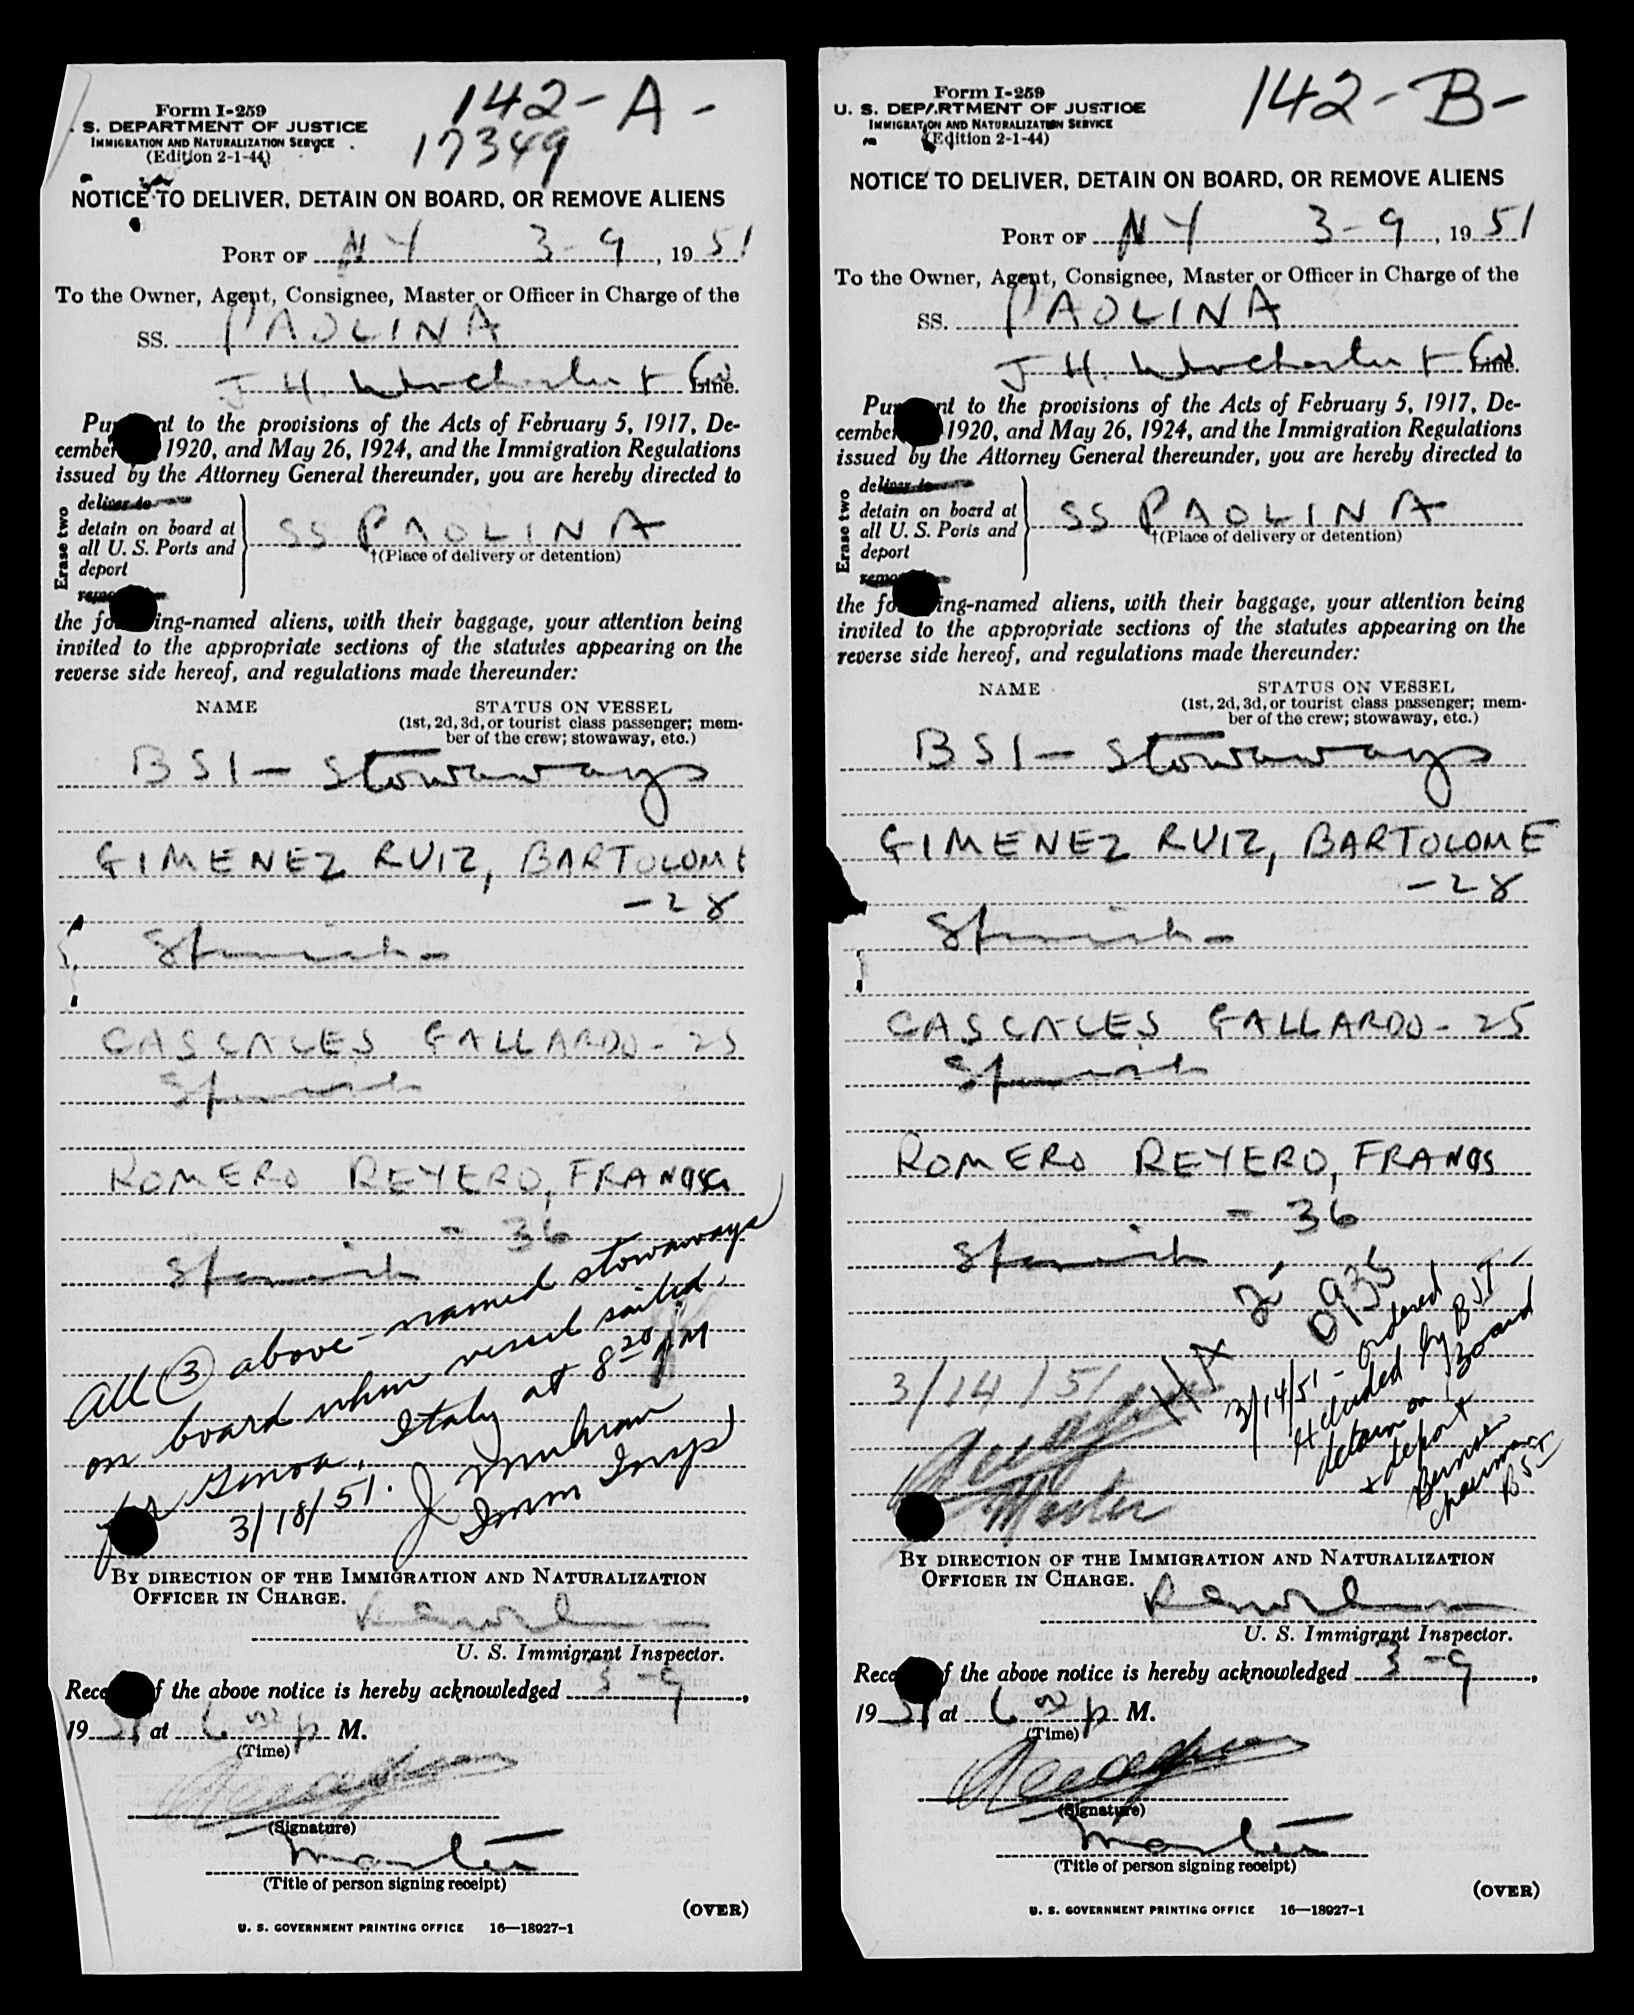 142-A-
17349
Form I-259
. S. DEPARTMENT OF JUSTICE
IMMIGRATION AND NATURALIZATION SERVICE
(Edition 2-1-44)
NOTICE TO DELIVER, DETAIN ON BOARD, OR REMOVE ALIENS
PORT OF NY 3-9, 1951
To the Owner, Agent, Consignee, Master or Officer in Charge of the
SS. PAOLINA
J H. Winchester + Co Line.
Pu nt to the provisions of the Acts of February 5, 1917, De-
cember 1920, and May 26, 1924, and the Immigration Regulations
issued by the Attorney General thereunder, you are hereby directed to
Erase two
deliver to
detain on board at
all U. S. Ports and
deport
SS PAOLINA
†(Place of delivery or detention)
the fo ing-named aliens, with their baggage, your attention being
invited to the appropriate sections of the statutes appearing on the
reverse side hereof, and regulations made thereunder:
NAME STATUS ON VESSEL
(1st, 2d, 3d, or tourist class passenger; mem-
ber of the crew; stowaway, etc.)
BSI - Stowaways
GIMENEZ RUIZ, BARTOLOME
-28
Spanish -
CASCALES GALLARDO - 25
Spanish
ROMERO REYERO, FRANCISCO
- 36
Spanish
All (3) above-named stowaways
on board when vessel sailed
for Genoa, Italy at 8 20 PM
3/18/51. J
Imm Insp
BY DIRECTION OF THE IMMIGRATION AND NATURALIZATION
OFFICER IN CHARGE.
U. S. Immigrant Inspector.
Rece f the above notice is hereby acknowledged 3-9,
1951 at 6 00 p M.
(Time)
(Signature)
Master
(Title of person signing receipt)
(OVER)
U. S. GOVERNMENT PRINTING OFFICE 16—18927-1
142-B-
Form I-259
U. S. DEPARTMENT OF JUSTICE
IMMIGRATION AND NATURALIZATION SERVICE
(Edition 2-1-44)
NOTICE TO DELIVER, DETAIN ON BOARD, OR REMOVE ALIENS
PORT OF NY 3-9, 1951
To the Owner, Agent, Consignee, Master or Officer in Charge of the
SS. PAOLINA
J H. Winchester + Co Line.
Pu nt to the provisions of the Acts of February 5, 1917, De-
cember 1920, and May 26, 1924, and the Immigration Regulations
issued by the Attorney General thereunder, you are hereby directed to
Erase two
deliver to
detain on board at
all U. S. Ports and
deport
SS PAOLINA
†(Place of delivery or detention)
the fo ing-named aliens, with their baggage, your attention being
invited to the appropriate sections of the statutes appearing on the
reverse side hereof, and regulations made thereunder:
NAME STATUS ON VESSEL
(1st, 2d, 3d, or tourist class passenger; mem-
ber of the crew; stowaway, etc.)
BSI - Stowaways
GIMENEZ RUIZ, BARTOLOME
-28
Spanish -
CASCALES GALLARDO - 25
Spanish
ROMERO REYERO, FRANCIS
- 36
Spanish
0935
3/14/51
Master
3/14/51 - ordered
excluded by BSI -
detain on Board
+ deport
chairman
BSI
BY DIRECTION OF THE IMMIGRATION AND NATURALIZATION
OFFICER IN CHARGE.
U. S. Immigrant Inspector.
Rece f the above notice is hereby acknowledged 3-9,
1951 at 6 00 p M.
(Time)
(Signature)
Master
(Title of person signing receipt)
(OVER)
U. S. GOVERNMENT PRINTING OFFICE 16—18927-1